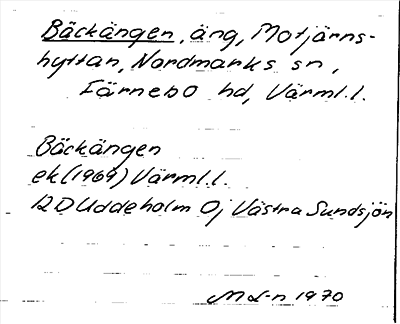 Bäckängen, äng, Motjärns-
hyttan, Nordmarks sn,
Färnebo hd, Värml.l.
Bäckängen
ek (1969) Värml.l.
12D Uddeholm 0j Västra Sundsjön
M L-n 1970